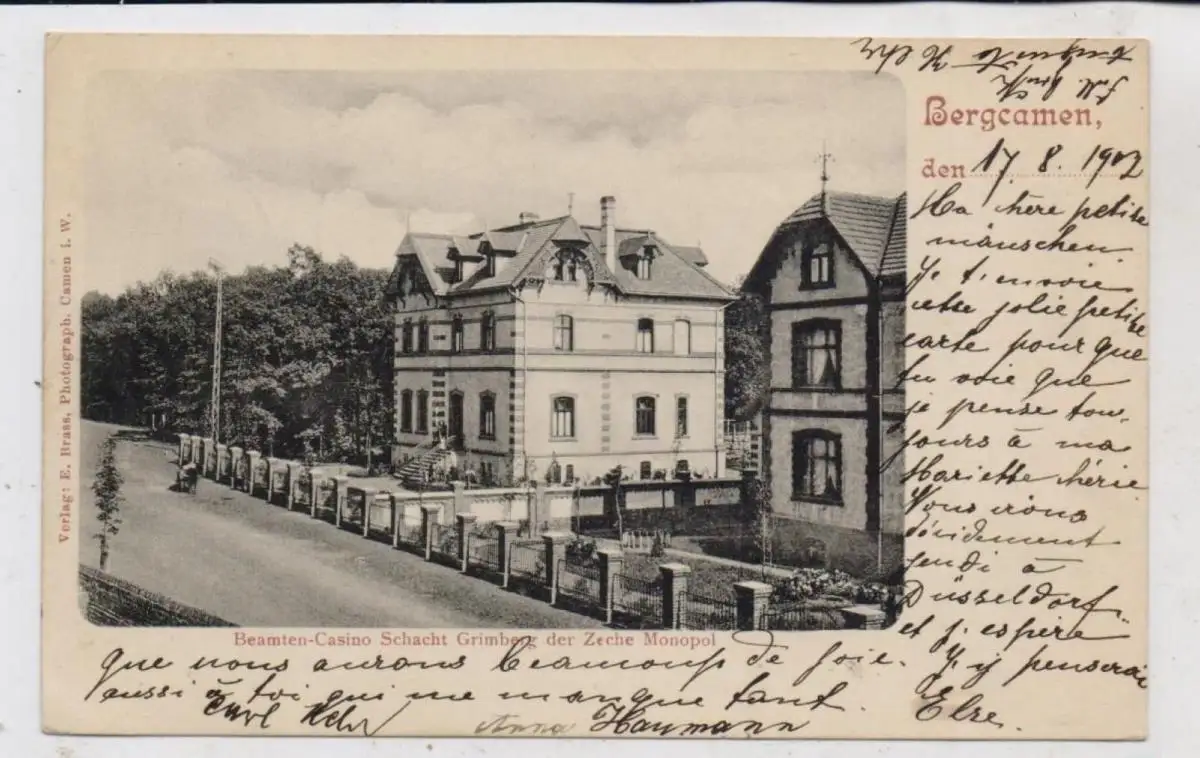 Bergcamen,
den 17. 8. 1902
Ma chère petite
mäuschen
Je t'envoie
cette jolie petite
carte pour que
tu voie que
je pense tou-
jours à ma
Mariette chérie
Nous irons
décidement
jeudi à
Düsseldorf
et j'espère
que nous aurons beaucoup de joie. J'y penserai
aussi à toi qui me manque tant.
Else.
Carl
Anna Haumann
Beamten-Casino Schacht Grimberg der Zeche Monopol
Verlag: E. Brass, Photograph. Camen i. W.